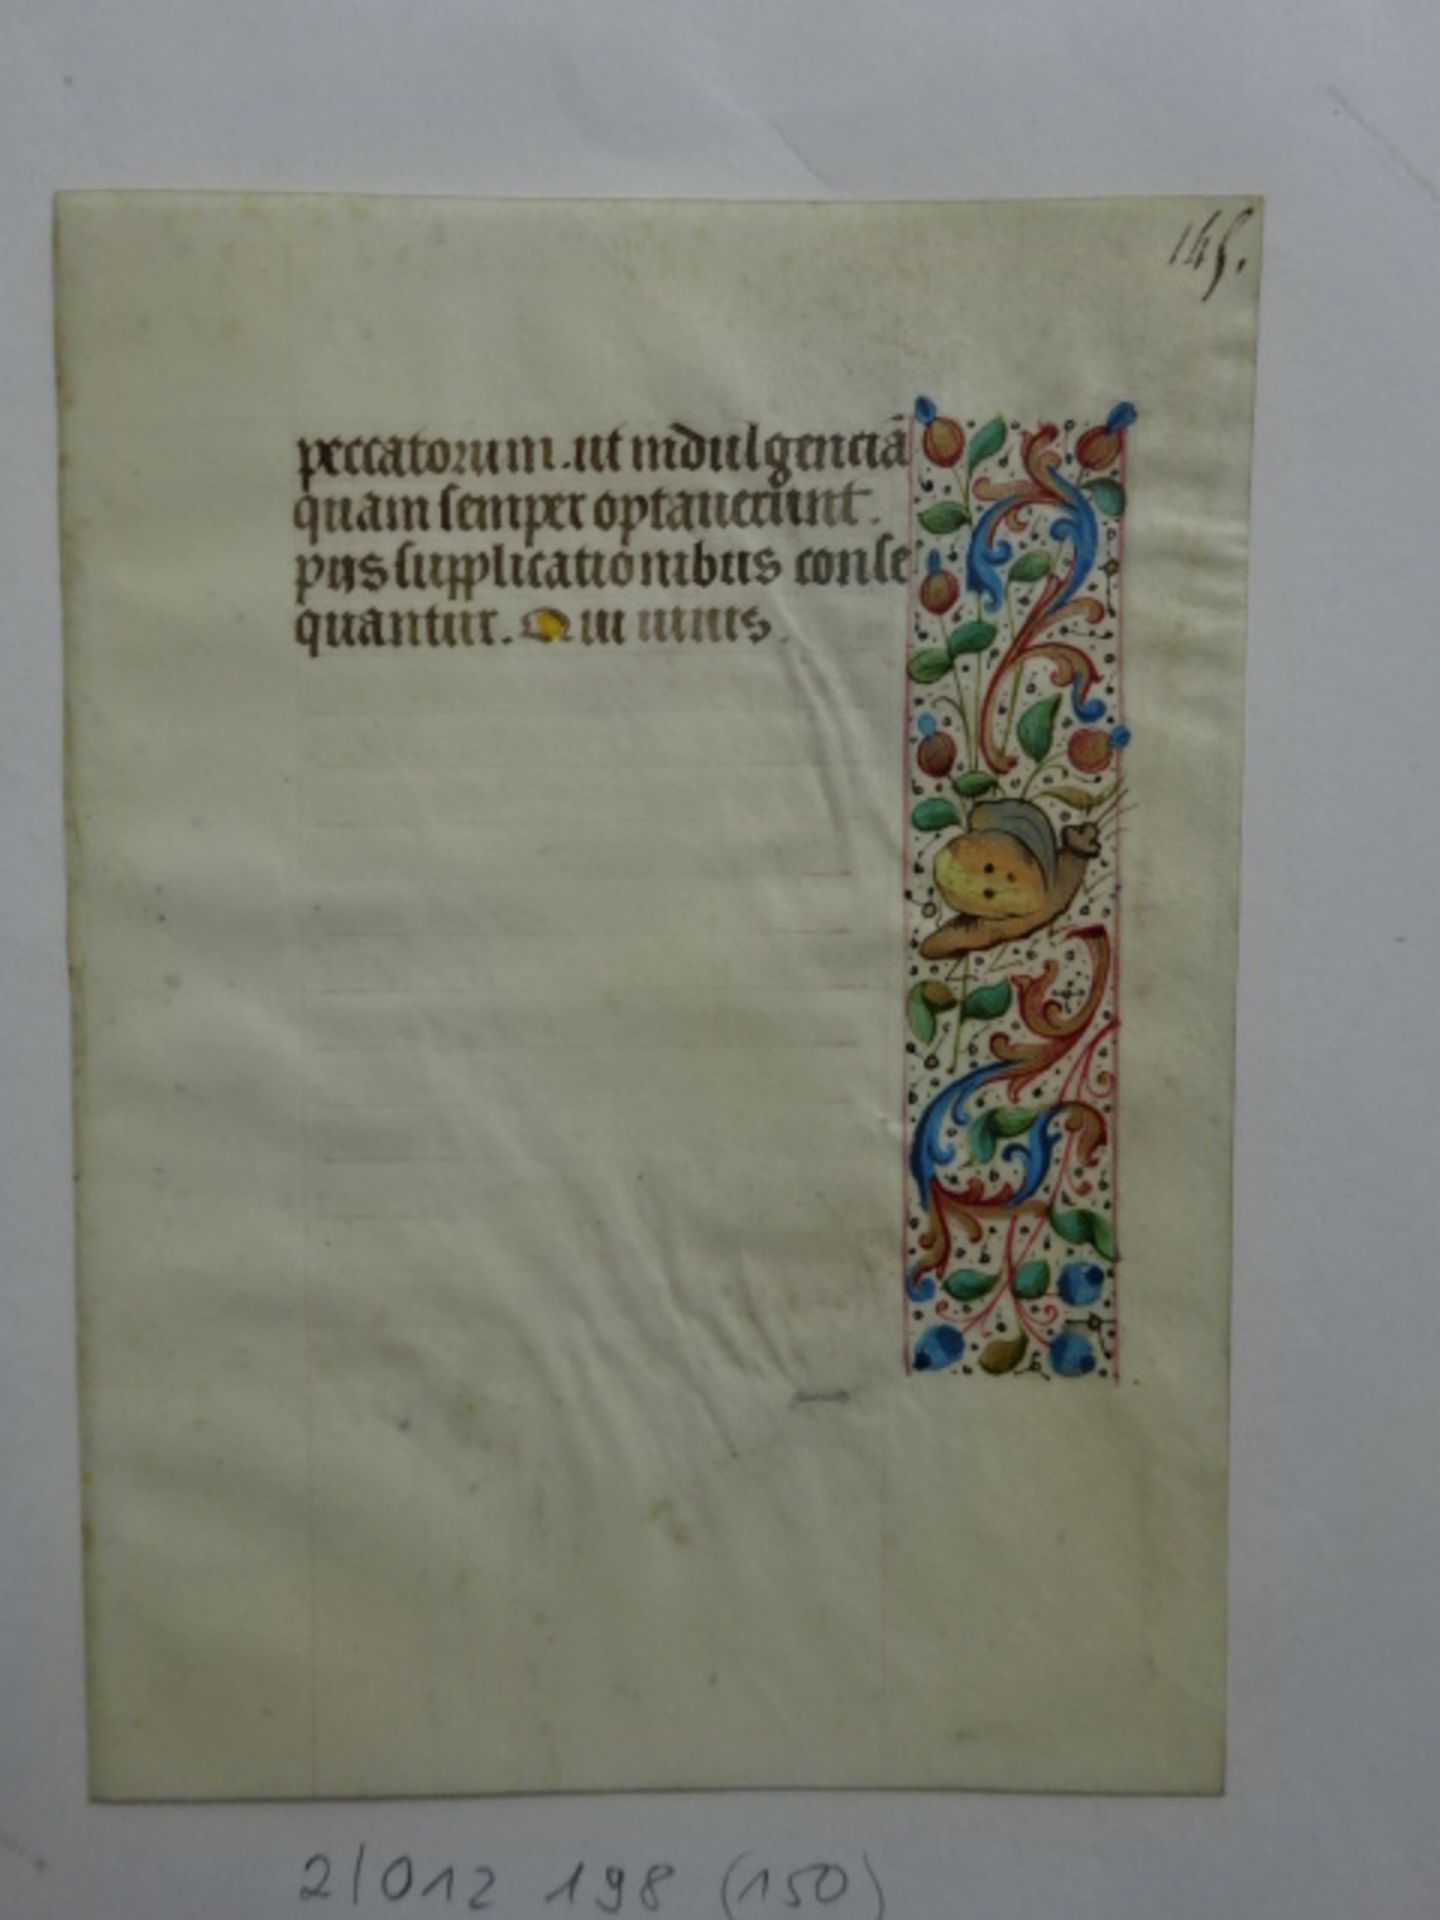 145.
peccatorum. ut indulgenciã
quam semper optauerunt.
piis supplicationibus conse
quantur. Qui uiuis.
2/012 198 (150)